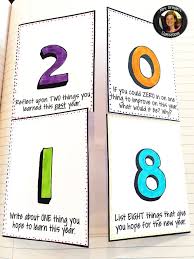 2
Reflect upon TWO things you
learned this past year.
0
If you could ZERO in on one
thing to improve on this year
what would it be? Why?
1
Write about ONE thing you
hope to learn this year.
8
List EIGHT things that give
you hope for the new year.